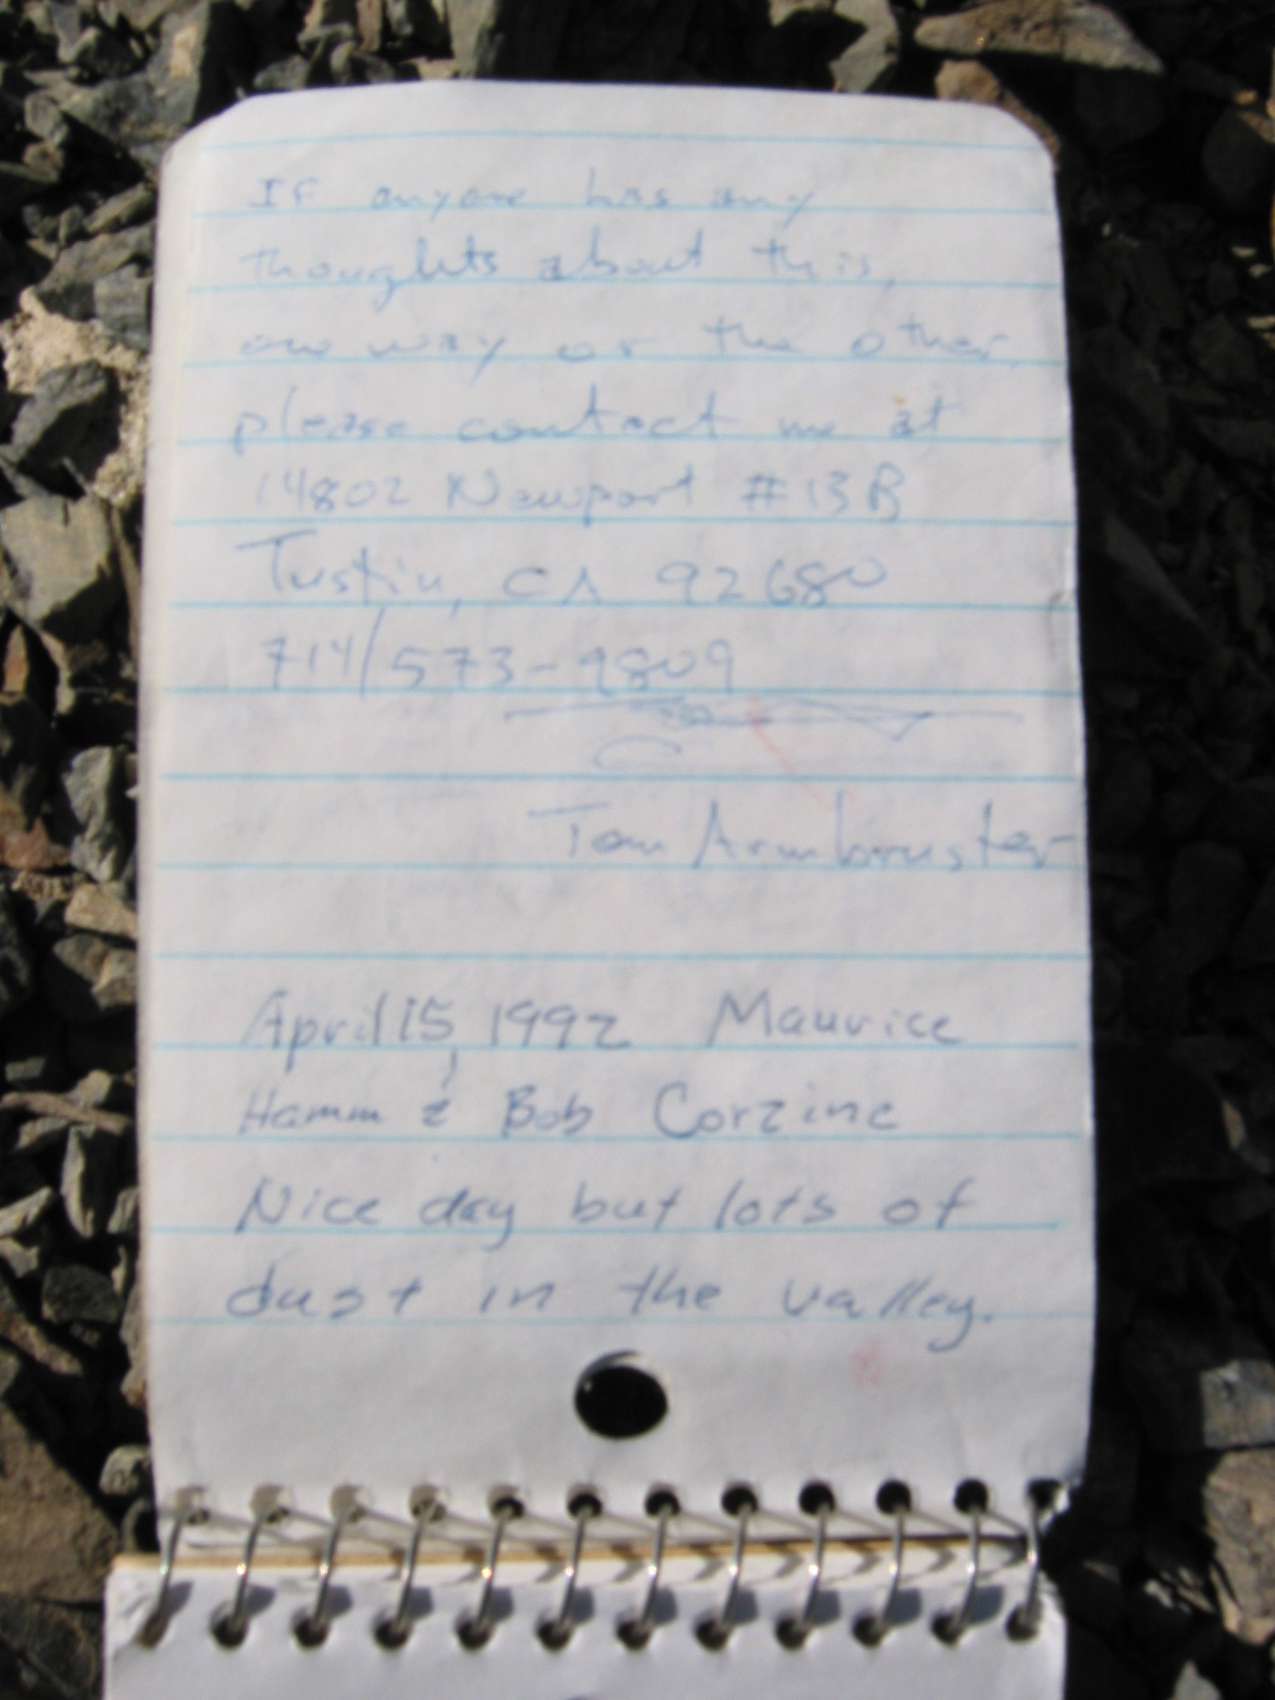 If anyone has any
thoughts about this,
one way or the other,
please contact me at
14802 Newport #13B
Tustin, CA 92680
714/573-9809
Tom Armbruster
April 15, 1992 Maurice
Hamm & Bob Corzine
Nice day but lots of
dust in the valley.